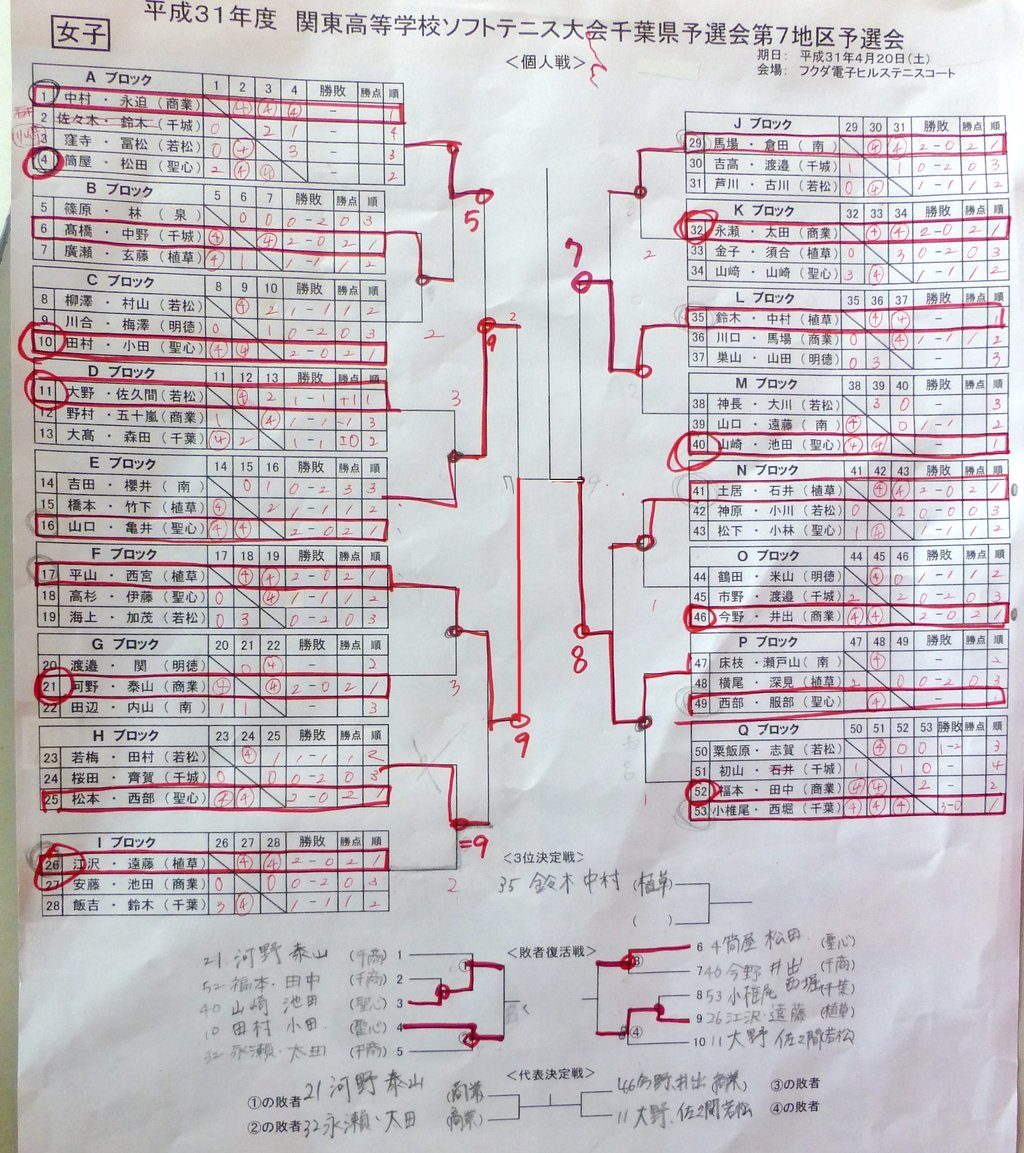 女子
平成31年度 関東高等学校ソフトテニス大会千葉県予選会第7地区予選会
<個人戦>
期日: 平成31年4月20日(土)
会場: フクダ電子ヒルステニスコート
A ブロック 1 2 3 4 勝敗 勝点 順
1 中村・永迫(商業) ④ ④ ④ - 1
2 佐々木・鈴木(千城) 0 2 1 - 4
3 窪寺・冨松(若松) 0 ④ 3 - 3
4 筒屋・松田(聖心) 2 ④ ④ - 2
B ブロック 5 6 7 勝敗 勝点 順
5 篠原・林(泉) 0 0 0-2 0 3
6 髙橋・中野(千城) ④ ④ 2-0 2 1
7 廣瀬・玄藤(植草) ④ 1 1-1 1 2
C ブロック 8 9 10 勝敗 勝点 順
8 柳澤・村山(若松) ④ 2 1-1 1 2
9 川合・梅澤(明徳) 0 1 0-2 0 3
10 田村・小田(聖心) ④ ④ 2-0 2 1
D ブロック 11 12 13 勝敗 勝点 順
11 大野・佐久間(若松) ④ 2 1-1 +1 1
12 野村・五十嵐(商業) 1 ④ 1-1 -1 3
13 大髙・森田(千葉) ④ 2 1-1 ±0 2
E ブロック 14 15 16 勝敗 勝点 順
14 吉田・櫻井(南) 0 1 0-2 3 3
15 橋本・竹下(植草) ④ 2 1-1 1 2
16 山口・亀井(聖心) ④ ④ 2-0 2 1
F ブロック 17 18 19 勝敗 勝点 順
17 平山・西宮(植草) ④ ④ 2-0 2 1
18 高杉・伊藤(聖心) 0 ④ 1-1 1 2
19 海上・加茂(若松) 0 3 0-2 0 3
G ブロック 20 21 22 勝敗 勝点 順
20 渡邉・関(明徳) 0 ④ - 2
21 河野・泰山(商業) ④ ④ 2-0 2 1
22 田辺・内山(南) 1 1 - 3
H ブロック 23 24 25 勝敗 勝点 順
23 若梅・田村(若松) ④ 1 1-1 1 2
24 桜田・齊賀(千城) 0 0 0-2 0 3
25 松本・西部(聖心) ④ ④ 2-0 2 1
I ブロック 26 27 28 勝敗 勝点 順
26 江沢・遠藤(植草) ④ ④ 2-0 2 1
27 安藤・池田(商業) 0 0 0-2 0 3
28 飯吉・鈴木(千葉) 3 ④ 1-1 1 2
J ブロック 29 30 31 勝敗 勝点 順
29 馬場・倉田(南) ④ ④ 2-0 2 1
30 吉高・渡邉(千城) 1 1 0-2 0 3
31 芦川・古川(若松) 0 ④ 1-1 1 2
K ブロック 32 33 34 勝敗 勝点 順
32 永瀬・太田(商業) ④ ④ 2-0 2 1
33 金子・須合(植草) 0 3 0-2 0 3
34 山﨑・山崎(聖心) 3 ④ 1-1 1 2
L ブロック 35 36 37 勝敗 勝点 順
35 鈴木・中村(植草) ④ ④ - 1
36 川口・馬場(商業) 0 ④ 1-1 1 2
37 巣山・山田(明徳) 0 3 - 3
M ブロック 38 39 40 勝敗 勝点 順
38 神長・大川(若松) 3 0 - 3
39 山口・遠藤(南) ④ 0 1-1 2
40 山崎・池田(聖心) ④ ④ - 1
N ブロック 41 42 43 勝敗 勝点 順
41 土居・石井(植草) ④ ④ 2-0 2 1
42 神原・小川(若松) 0 2 0-0 0 3
43 松下・小林(聖心) 1 ④ 1-1 1 2
O ブロック 44 45 46 勝敗 勝点 順
44 鶴田・米山(明徳) ④ 0 1-1 1 2
45 市野・渡邉(千城) 2 2 0-2 0 3
46 今野・井出(商業) ④ ④ 2-0 2 1
P ブロック 47 48 49 勝敗 勝点 順
47 床枝・瀬戸山(南) ④ - 2
48 横尾・深見(植草) 2 0 0-2 0 3
49 西部・服部(聖心) ④ - 1
Q ブロック 50 51 52 53 勝敗 勝点 順
50 粟飯原・志賀(若松) ④ 0 0 1-2 3
51 初山・石井(千城) 1 1 0 - 4
52 福本・田中(商業) ④ ④ 2 - 2
53 小椎尾・西堀(千葉) ④ ④ ④ 3-0 1
5
9
9
=9
7
8
<3位決定戦>
35 鈴木 中村 (植草)
( )
<敗者復活戦>
21 河野 泰山 (千商) 1
52 福本・田中 (千商) 2
40 山崎 池田 (聖心) 3
10 田村 小田 (聖心) 4
32 永瀬・太田 (千商) 5
① ②
6 4 筒屋 松田 (聖心)
7 46 今野 井出 (千商)
8 53 小椎尾 西堀 (千葉)
9 26 江沢・遠藤 (植草)
10 11 大野 佐久間(若松)
③ ④
<代表決定戦>
①の敗者 21 河野 泰山 (商業)
②の敗者 32 永瀬・太田 (商業)
46 今野、井出(商業) ③の敗者
11 大野、佐久間若松 ④の敗者